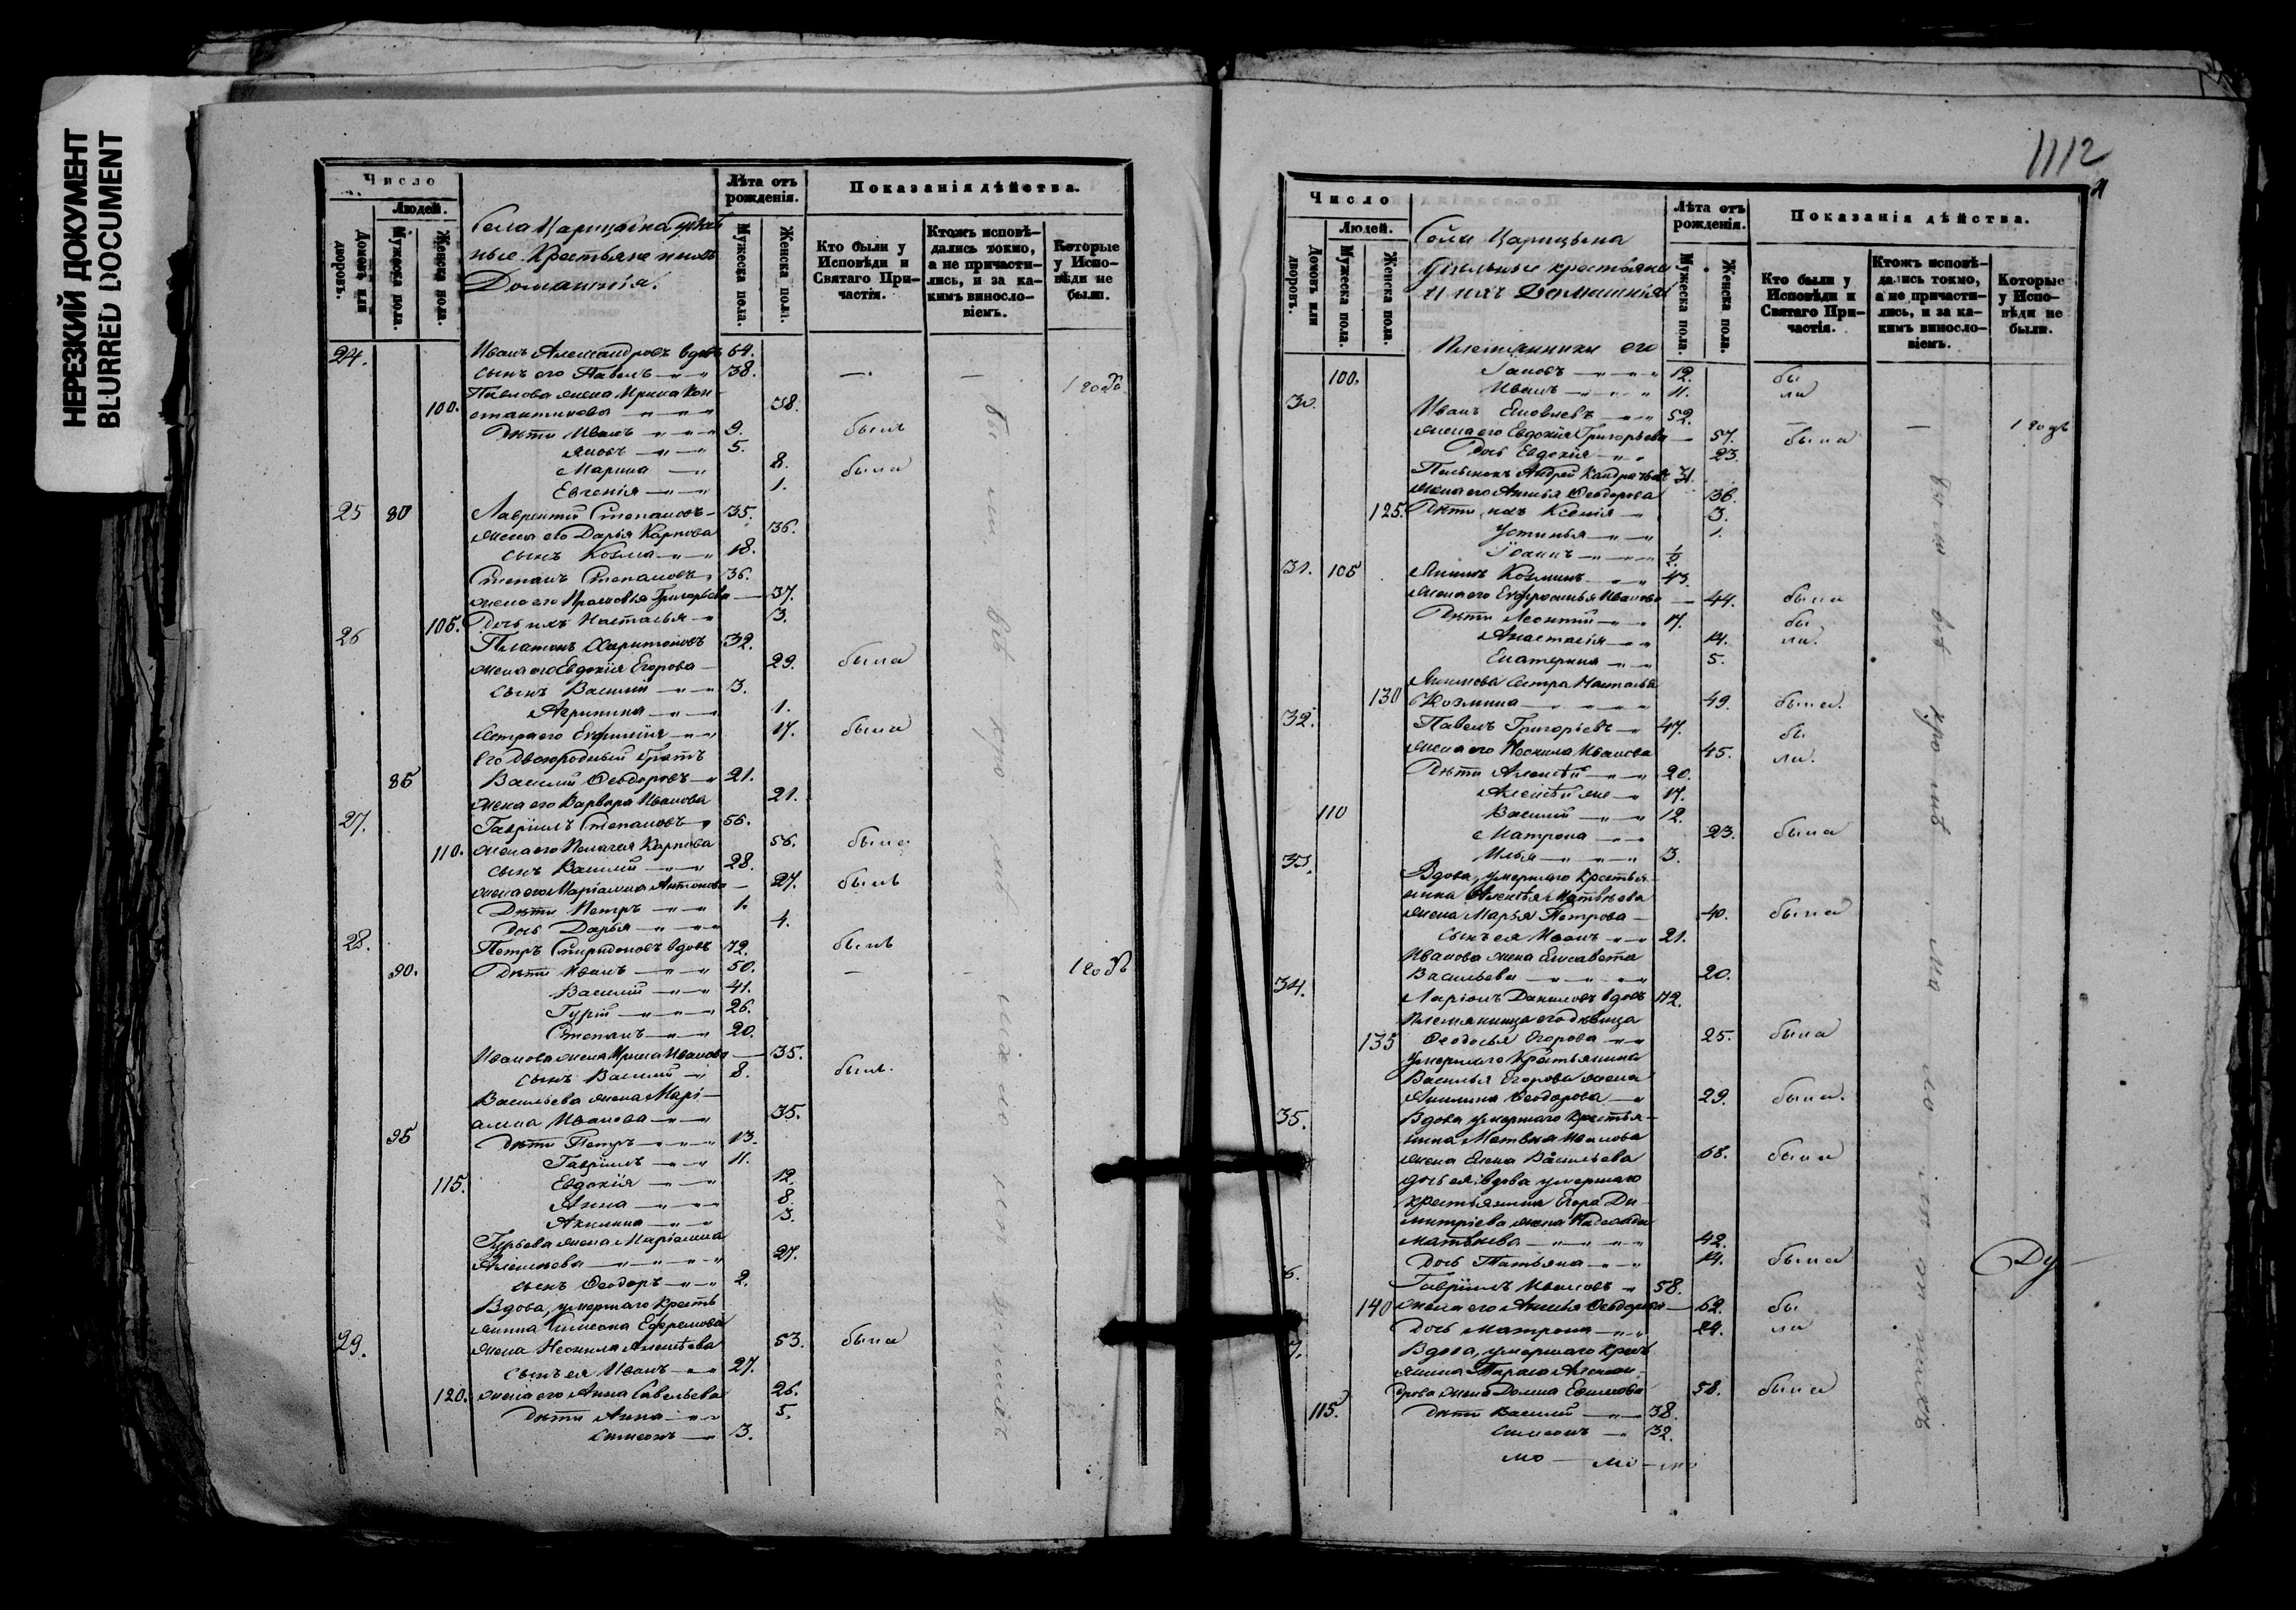 НЕРЕЗКИЙ ДОКУМЕНТ
BLURRED DOCUMENT
Число
Людей.
Домовъ или дворовъ.
Мужеска пола.
Женска пола.
Лѣта отъ рожденія.
Мужеска пола.
Женска пола.
Показанія дѣйства.
Кто были у Исповѣди и Святаго Причастія.
Ктожъ исповѣдались токмо, а не причастились, и за какимъ винословіемъ.
Которые у Исповѣди не были.
Села Царицына Удѣль
ные Крестьяне и ихъ
Домашнія.
24. Иванъ Александровъ вдовъ 64.
сынъ его Павелъ 38. 1 годъ
Павлова жена Ирина Кон
100. стантинова 38.
Дѣти Иванъ 9. былъ
Яковъ 5.
Марина 8. была
Евгенія 1.
25 80 Лаврентій Степановъ 35.
жена его Дарья Карпова 36.
сынъ Козма 18.
Степанъ Степановъ 36.
жена его Прасковья Григорьева 37.
105. Дочь ихъ Наталья 3.
26 Платонъ Харитоновъ 32.
жена его Евдокія Егорова 29. была
сынъ Василій 3.
Агрипина 1.
Сестра его Евфимія 17. была
Его двоюродный братъ
85 Василій Ѳеодоровъ 21.
жена его Варвара Иванова 21.
27. Гавріилъ Степановъ 56.
110. жена его Пелагея Карпова 56. была
сынъ Василій 28.
жена его Маріамна Антонова 27. былъ
Дѣти Петръ 1.
дочь Дарья 4.
28. Петръ Спиридоновъ вдовъ 72. былъ
90. Дѣти Иванъ 50. 1 годъ
Василій 41.
Гурій 26.
Степанъ 20.
Иванова жена Ирина Иванова 35.
сынъ Василій 8. былъ.
Васильева жена Марі-
амна Иванова 35.
95 Дѣти Петръ 13.
Гавріилъ 11.
115. Евдокія 12.
Анна 8.
Акилина 3.
Гурьева жена Маріамна
Алексѣева 27.
сынъ Ѳеодоръ 2.
Вдова, умершаго Кресть
янина Симеона Ефремова
29. жена Неонила Алексѣева 53. была
сынъ ея Иванъ 27.
120. жена его Анна Савельева 26.
Дѣти Анна 5.
Симеонъ 3.
1112
Число
Людей.
Домовъ или дворовъ.
Мужеска пола.
Женска пола.
Лѣта отъ рожденія.
Мужеска пола.
Женска пола.
Показанія дѣйства.
Кто были у Исповѣди и Святаго Причастія.
Ктожъ исповѣдались токмо, а не причастились, и за какимъ винословіемъ.
Которые у Исповѣди не были.
Села Царицына
Удѣльные крестьяне
и ихъ Домашнія
Племянники его
100. Іаковъ 12. бы
Иванъ 11. ли
30. Иванъ Яковлевъ 52. 1 годъ
жена его Евдокія Григорьева 57. была
Дочь Евдокія 23.
Андрей 31.
жена его Анисья Ѳеодорова 36.
125. Дѣти ихъ Ксенія 3.
Устинья 1.
Іоаннъ 1/2.
31. 105 Якимъ Козминъ 43.
жена его Евфросинья Иванова 44. была
Дѣти Леонтій 17. бы
Анастасія 14. ли.
Екатерина 5.
Якимова Сестра Наталья
130 Козмина 49. была.
32. Павелъ Григорьевъ 47. бы
жена его Неонила Иванова 45. ли.
Дѣти Алексѣй 20.
Алексѣй же 17.
110 Василій 12.
Матрона 23. была
Илья 3.
33. Вдова, умершаго Крестья-
нина Алексѣя Матвѣева
жена Марья Петрова 40. была
сынъ ея Иванъ 21.
Иванова жена Елисавета
Васильева 20.
34. Ларіонъ Даниловъ вдовъ 72.
Племянница его дѣвица
135 Ѳеодосья Егорова 25. была
Умершаго Крестьянина
Василья Егорова жена
Акилина Ѳеодорова 29. была.
35. Вдова умершаго Крестья-
нина Матвѣя Иванова
жена Елена Васильева 68. была
дочь ея вдова умершаго
крестьянина Егора Ди-
митріева жена Надежда
Матвѣева 42.
дочь Татьяна 14. была
6. Гавріилъ Ивановъ 58.
140 жена его Анисья Ѳеодорова 62. бы
Дочь Матрона 24. ли
7. Вдова, умершаго Крест
янина Тараса Алексан-
дрова жена Домна Ефимова 58. была
115. Дѣти Василій 38.
Симеонъ 32.
Ду